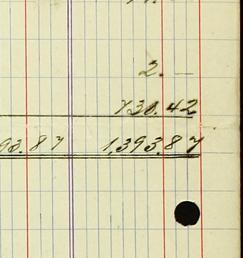 2. —
730.42
93.87 1,393.87